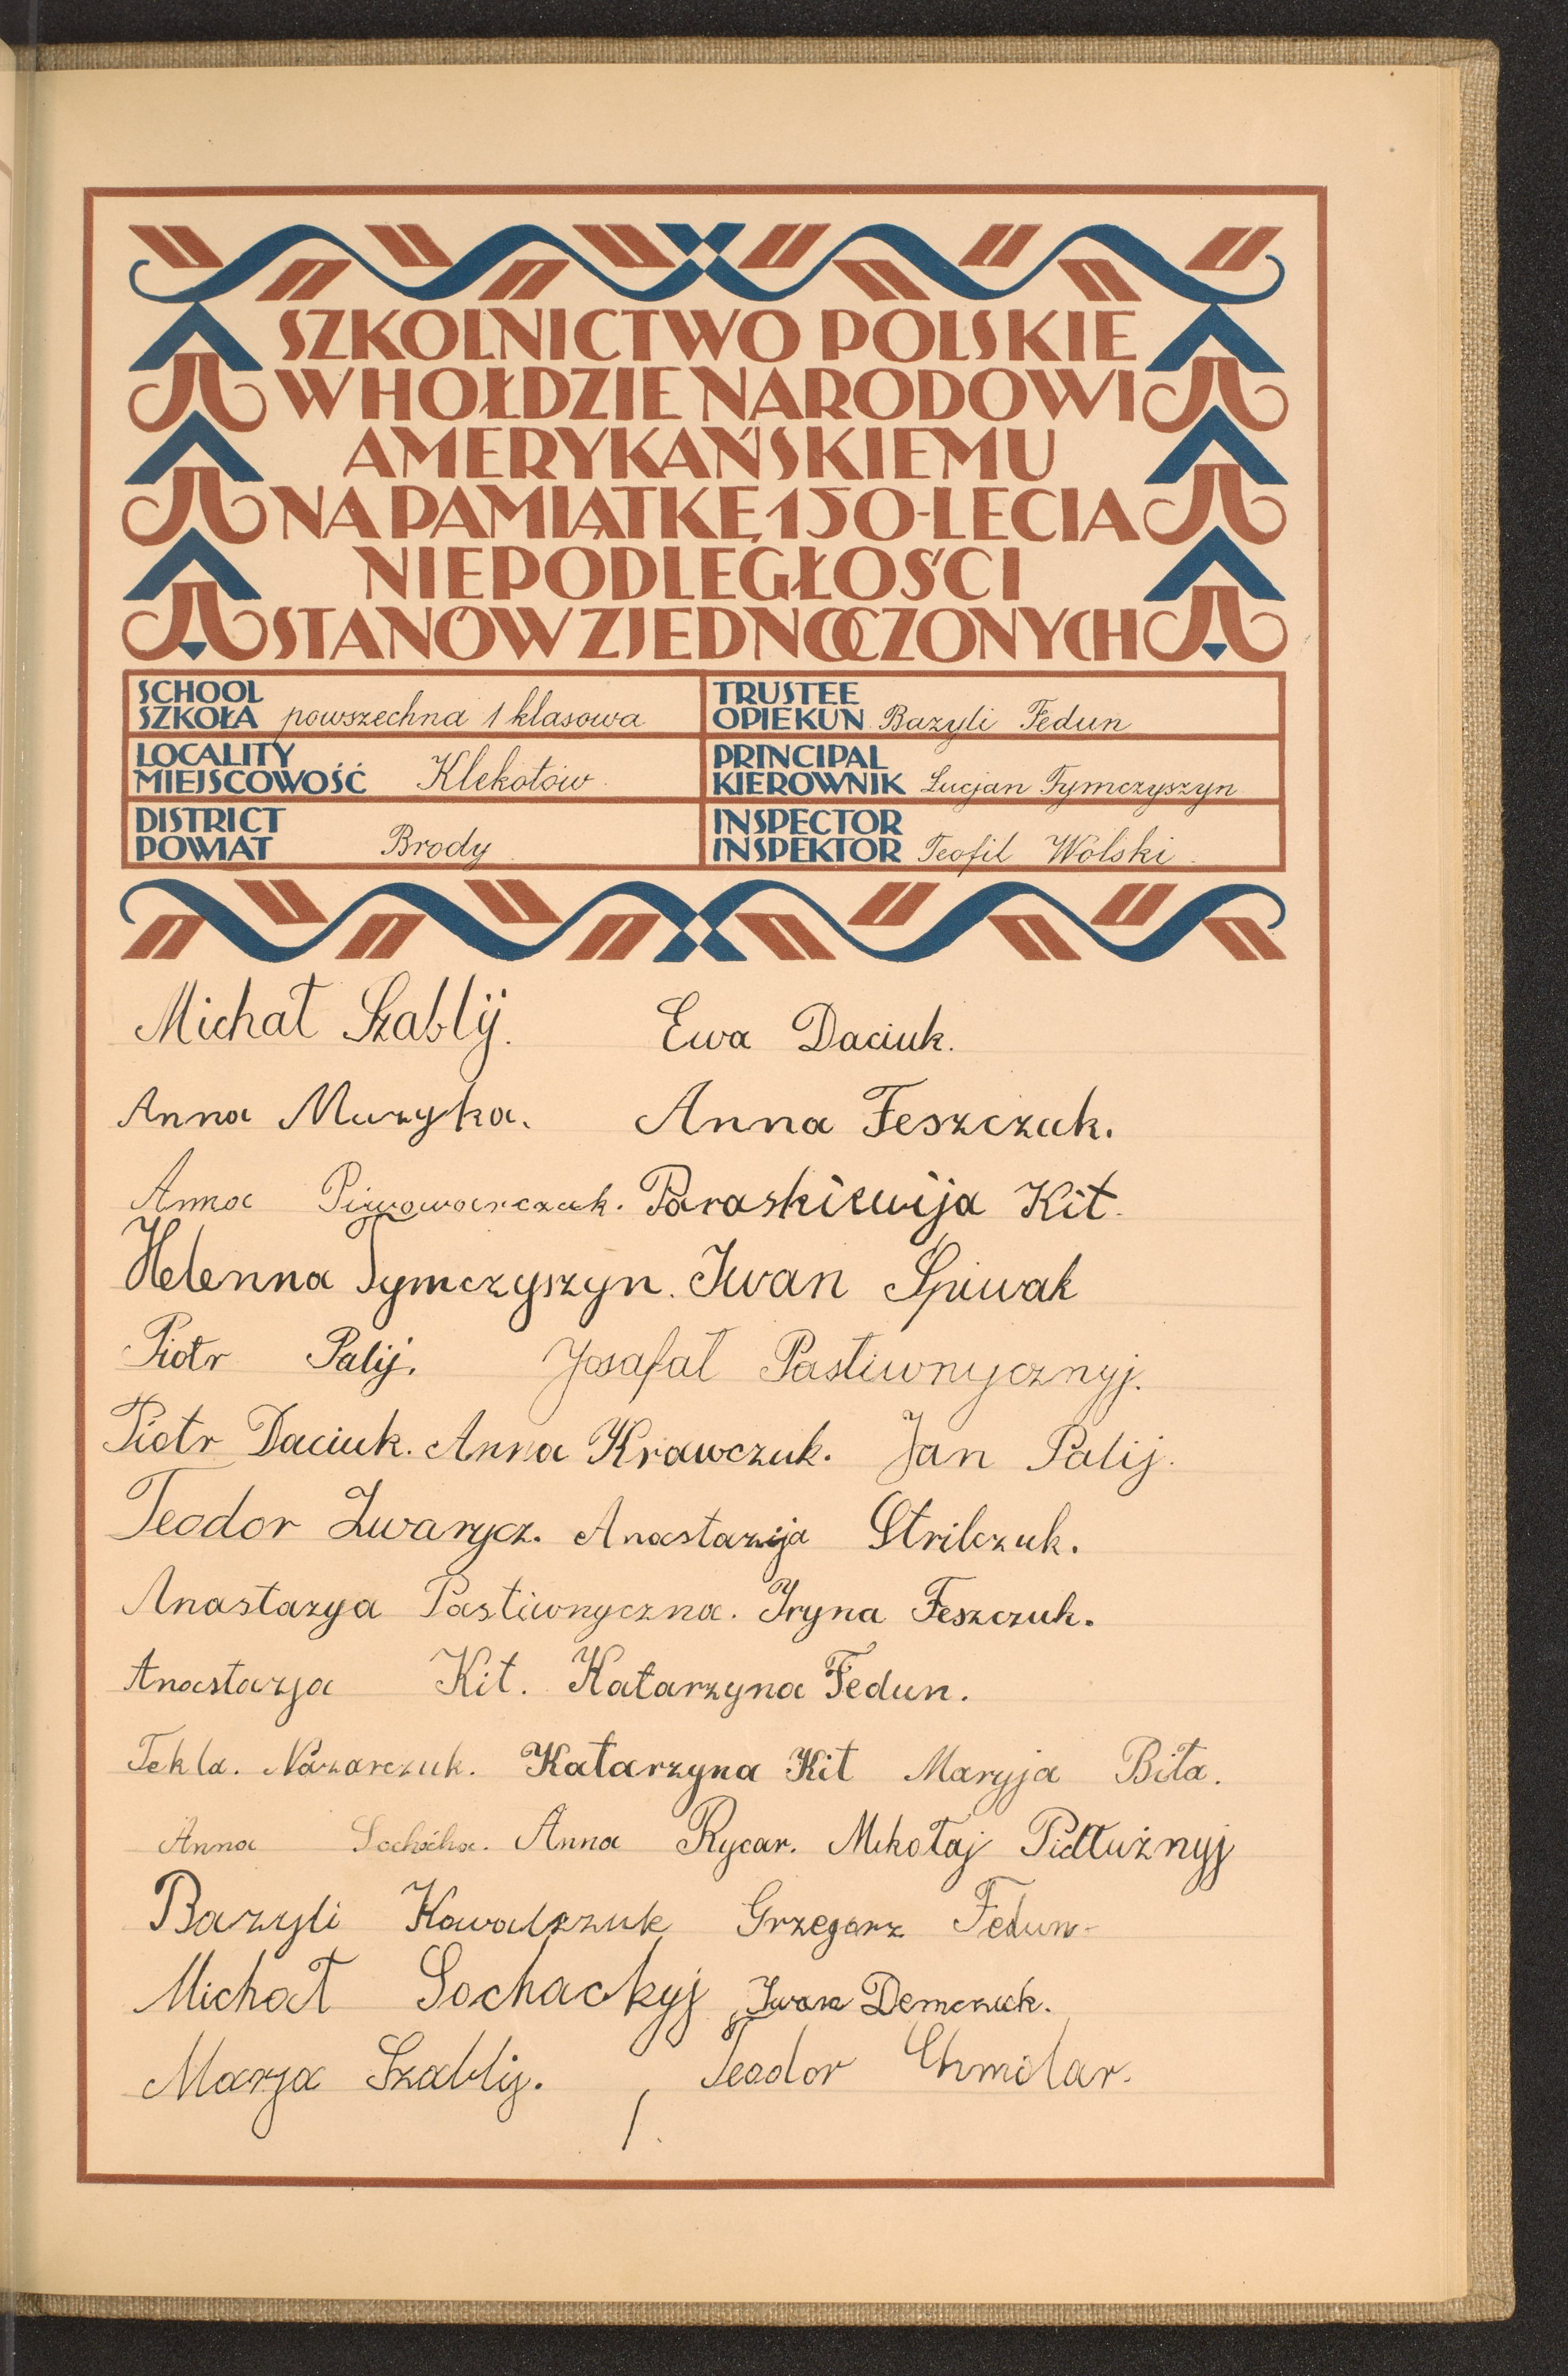 SZKOLNICTWO POLSKIE
W HOŁDZIE NARODOWI
AMERYKAŃSKIEMU
NA PAMIĄTKĘ 150-LECIA
NIEPODLEGŁOŚCI
STANÓW ZJEDNOCZONYCH
SCHOOL
SZKOŁA powszechna 1 klasowa
TRUSTEE
OPIEKUN Bazyli Fedun
LOCALITY
MIEJSCOWOŚĆ Klekotów
PRINCIPAL
KIEROWNIK Lucjan Tymczyszyn
DISTRICT
POWIAT Brody
INSPECTOR
INSPEKTOR Teofil Wolski
Michał Szablij. Ewa Daciuk.
Anna Muzyka. Anna Feszczuk.
Anna Piwowarczuk. Paraskiewija Kit.
Helenna Tymczyszyn. Iwan Spiwak
Piotr Palij. Josafat Pastiwnycznyj.
Piotr Daciuk. Anna Krawczuk. Jan Palij.
Teodor Zwarycz. Anastazija Strilczuk.
Anastazya Pastiwnyczna. Iryna Feszczuk.
Anastazja Kit. Katarzyna Fedun.
Tekla. Nazarczuk. Katarzyna Kit Maryja Biła.
Anna Anna Rycar. Mikołaj Pidłużnyj
Bazyli Kowalczuk Grzegorz Fedun
Michał Sochackyj Iwan Demczuk.
Marja Szablij. Teodor Chmilar.